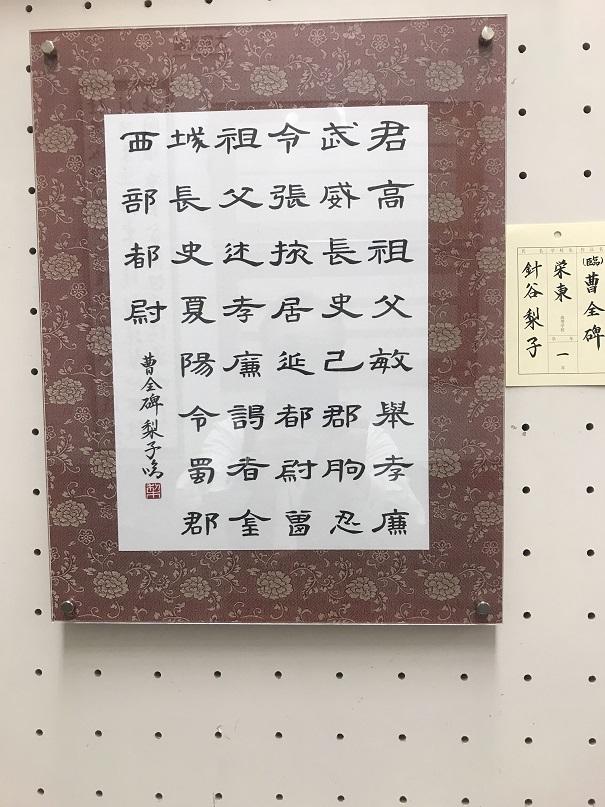 君高祖父敏舉孝廉
武威長史己郡朐忍
令張掖居延都尉曾
祖父述孝廉謁者金
城長史夏陽令蜀郡
西部都尉
曹全碑 梨子臨
(臨)曹全碑
栄東 高等学校
一年
針谷梨子